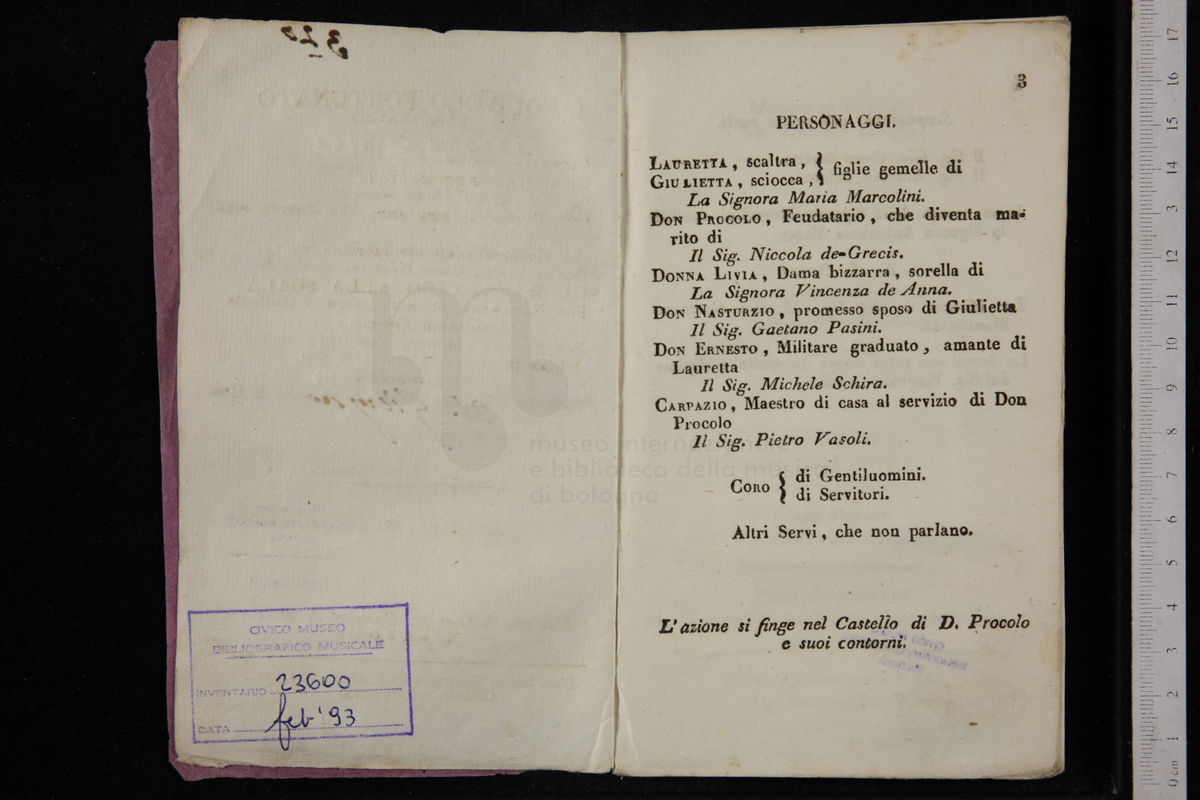 320
CIVICO MUSEO
BIBLIOGRAFICO MUSICALE
INVENTARIO 23600
DATA feb '93
museo internazionale
e biblioteca della musica
di bologna
3
PERSONAGGI.
LAURETTA, scaltra, } figlie gemelle di
GIULIETTA, sciocca,
La Signora Maria Marcolini.
DON PROCOLO, Feudatario, che diventa ma-
rito di
Il Sig. Niccola de-Grecis.
DONNA LIVIA, Dama bizzarra, sorella di
La Signora Vincenza de Anna.
DON NASTURZIO, promesso sposo di Giulietta
Il Sig. Gaetano Pasini.
DON ERNESTO, Militare graduato, amante di
Lauretta
Il Sig. Michele Schira.
CARPAZIO, Maestro di casa al servizio di Don
Procolo
Il Sig. Pietro Vasoli.
CORO { di Gentiluomini.
di Servitori.
Altri Servi, che non parlano.
L'azione si finge nel Castello di D. Procolo
e suoi contorni.
0 cm 1 2 3 4 5 6 7 8 9 10 11 12 13 14 15 16 17